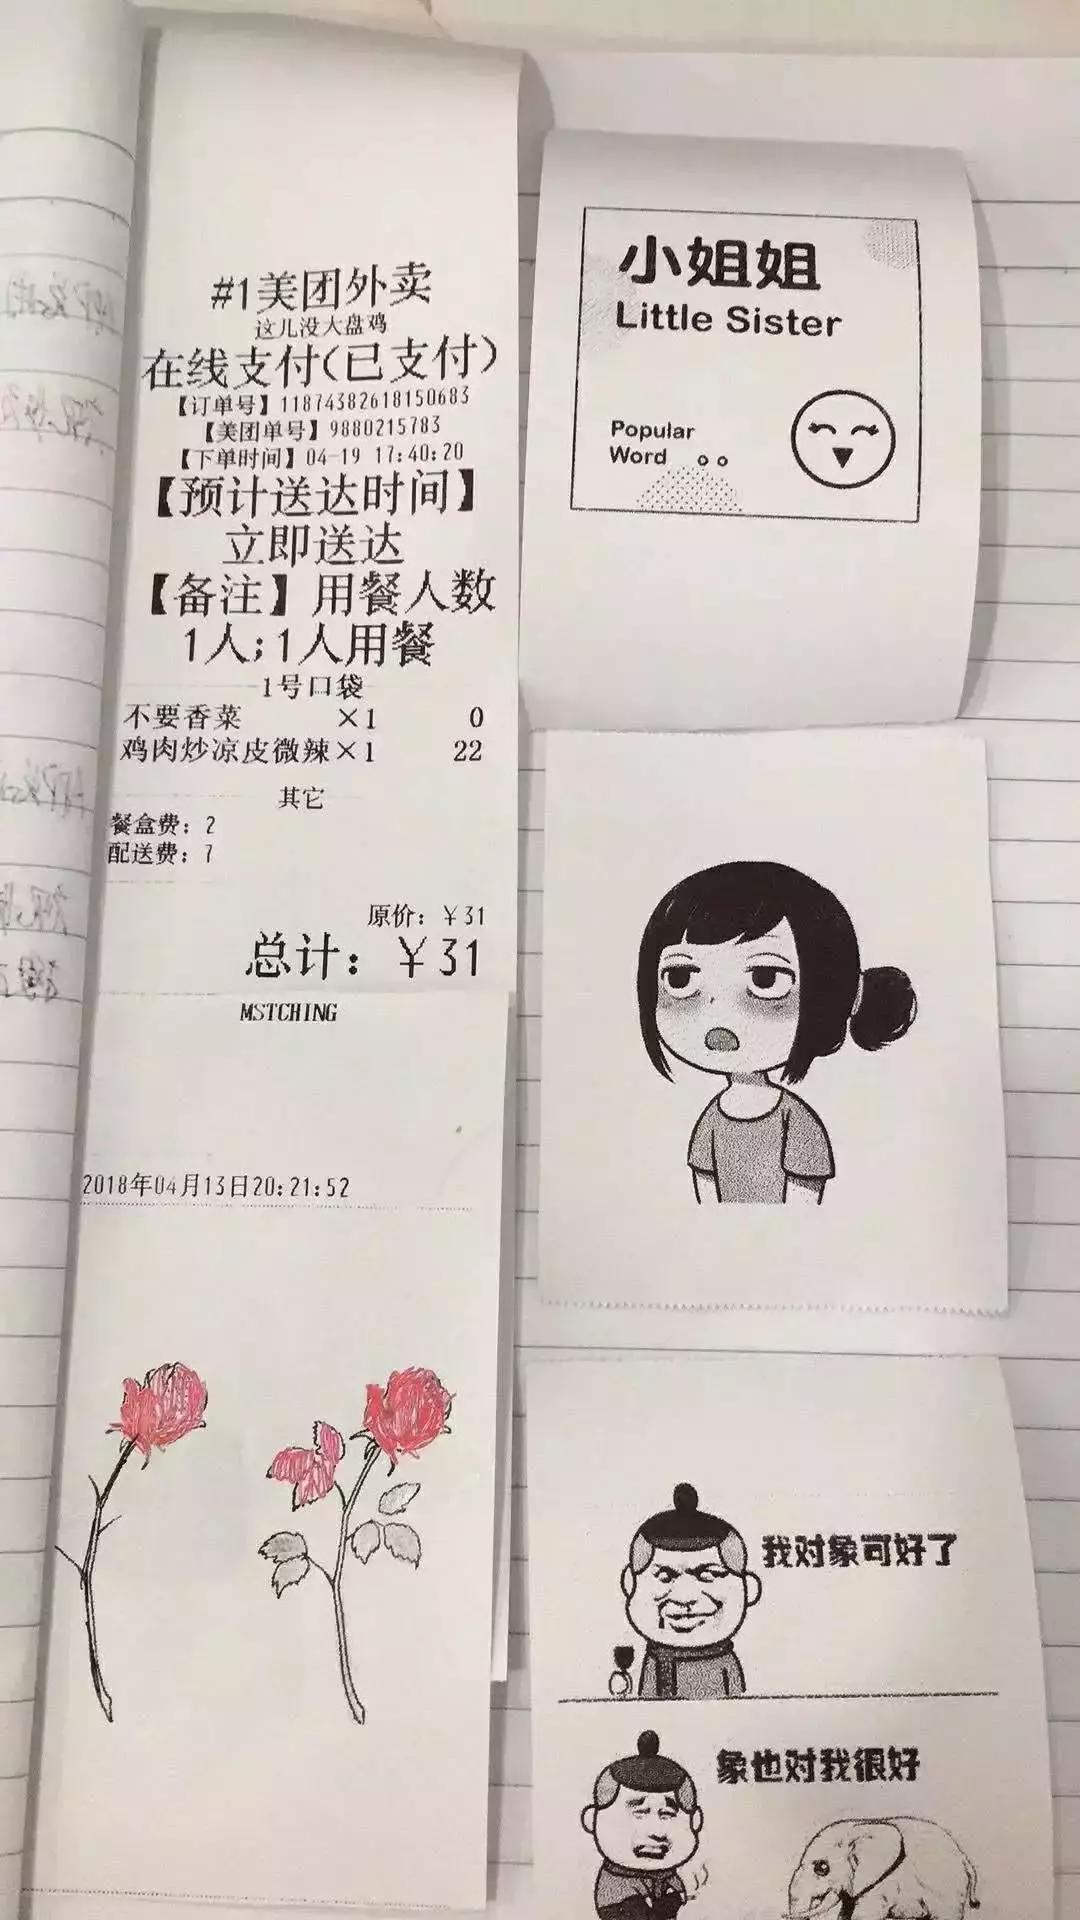 #1美团外卖
这儿没大盘鸡
在线支付(已支付)
【订单号】11874382618150683
【美团单号】9880215783
【下单时间】04-19 17:40:20
【预计送达时间】
立即送达
【备注】用餐人数
1人;1人用餐
1号口袋
不要香菜 ×1 0
鸡肉炒凉皮微辣×1 22
其它
餐盒费：2
配送费：7
原价：￥31
总计：￥31
MSTCHING
2018年04月13日20:21:52
小姐姐
Little Sister
Popular
Word
我对象可好了
象也对我很好